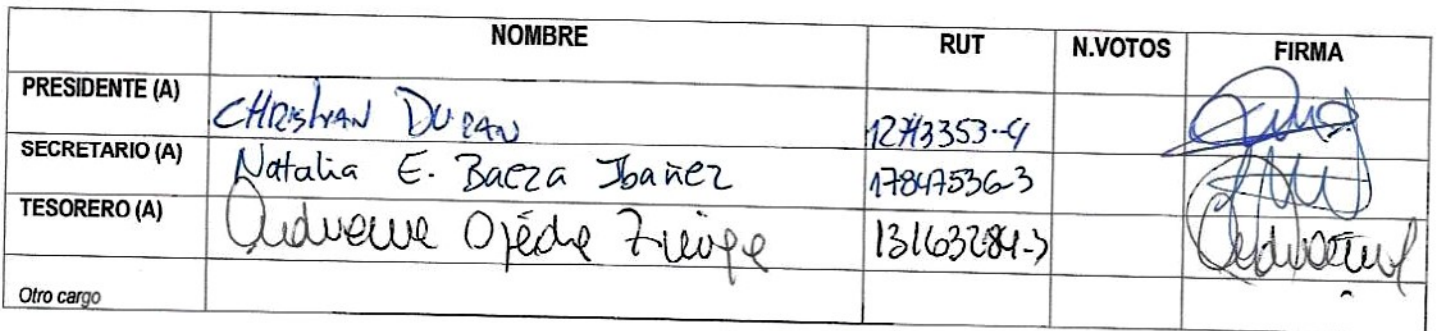 NOMBRE RUT N.VOTOS FIRMA
PRESIDENTE (A) CHRISTIAN DURAN
SECRETARIO (A) Natalia E. Baeza Ibañez 17847536-3
TESORERO (A) Ojeda 13163284-3
Otro cargo